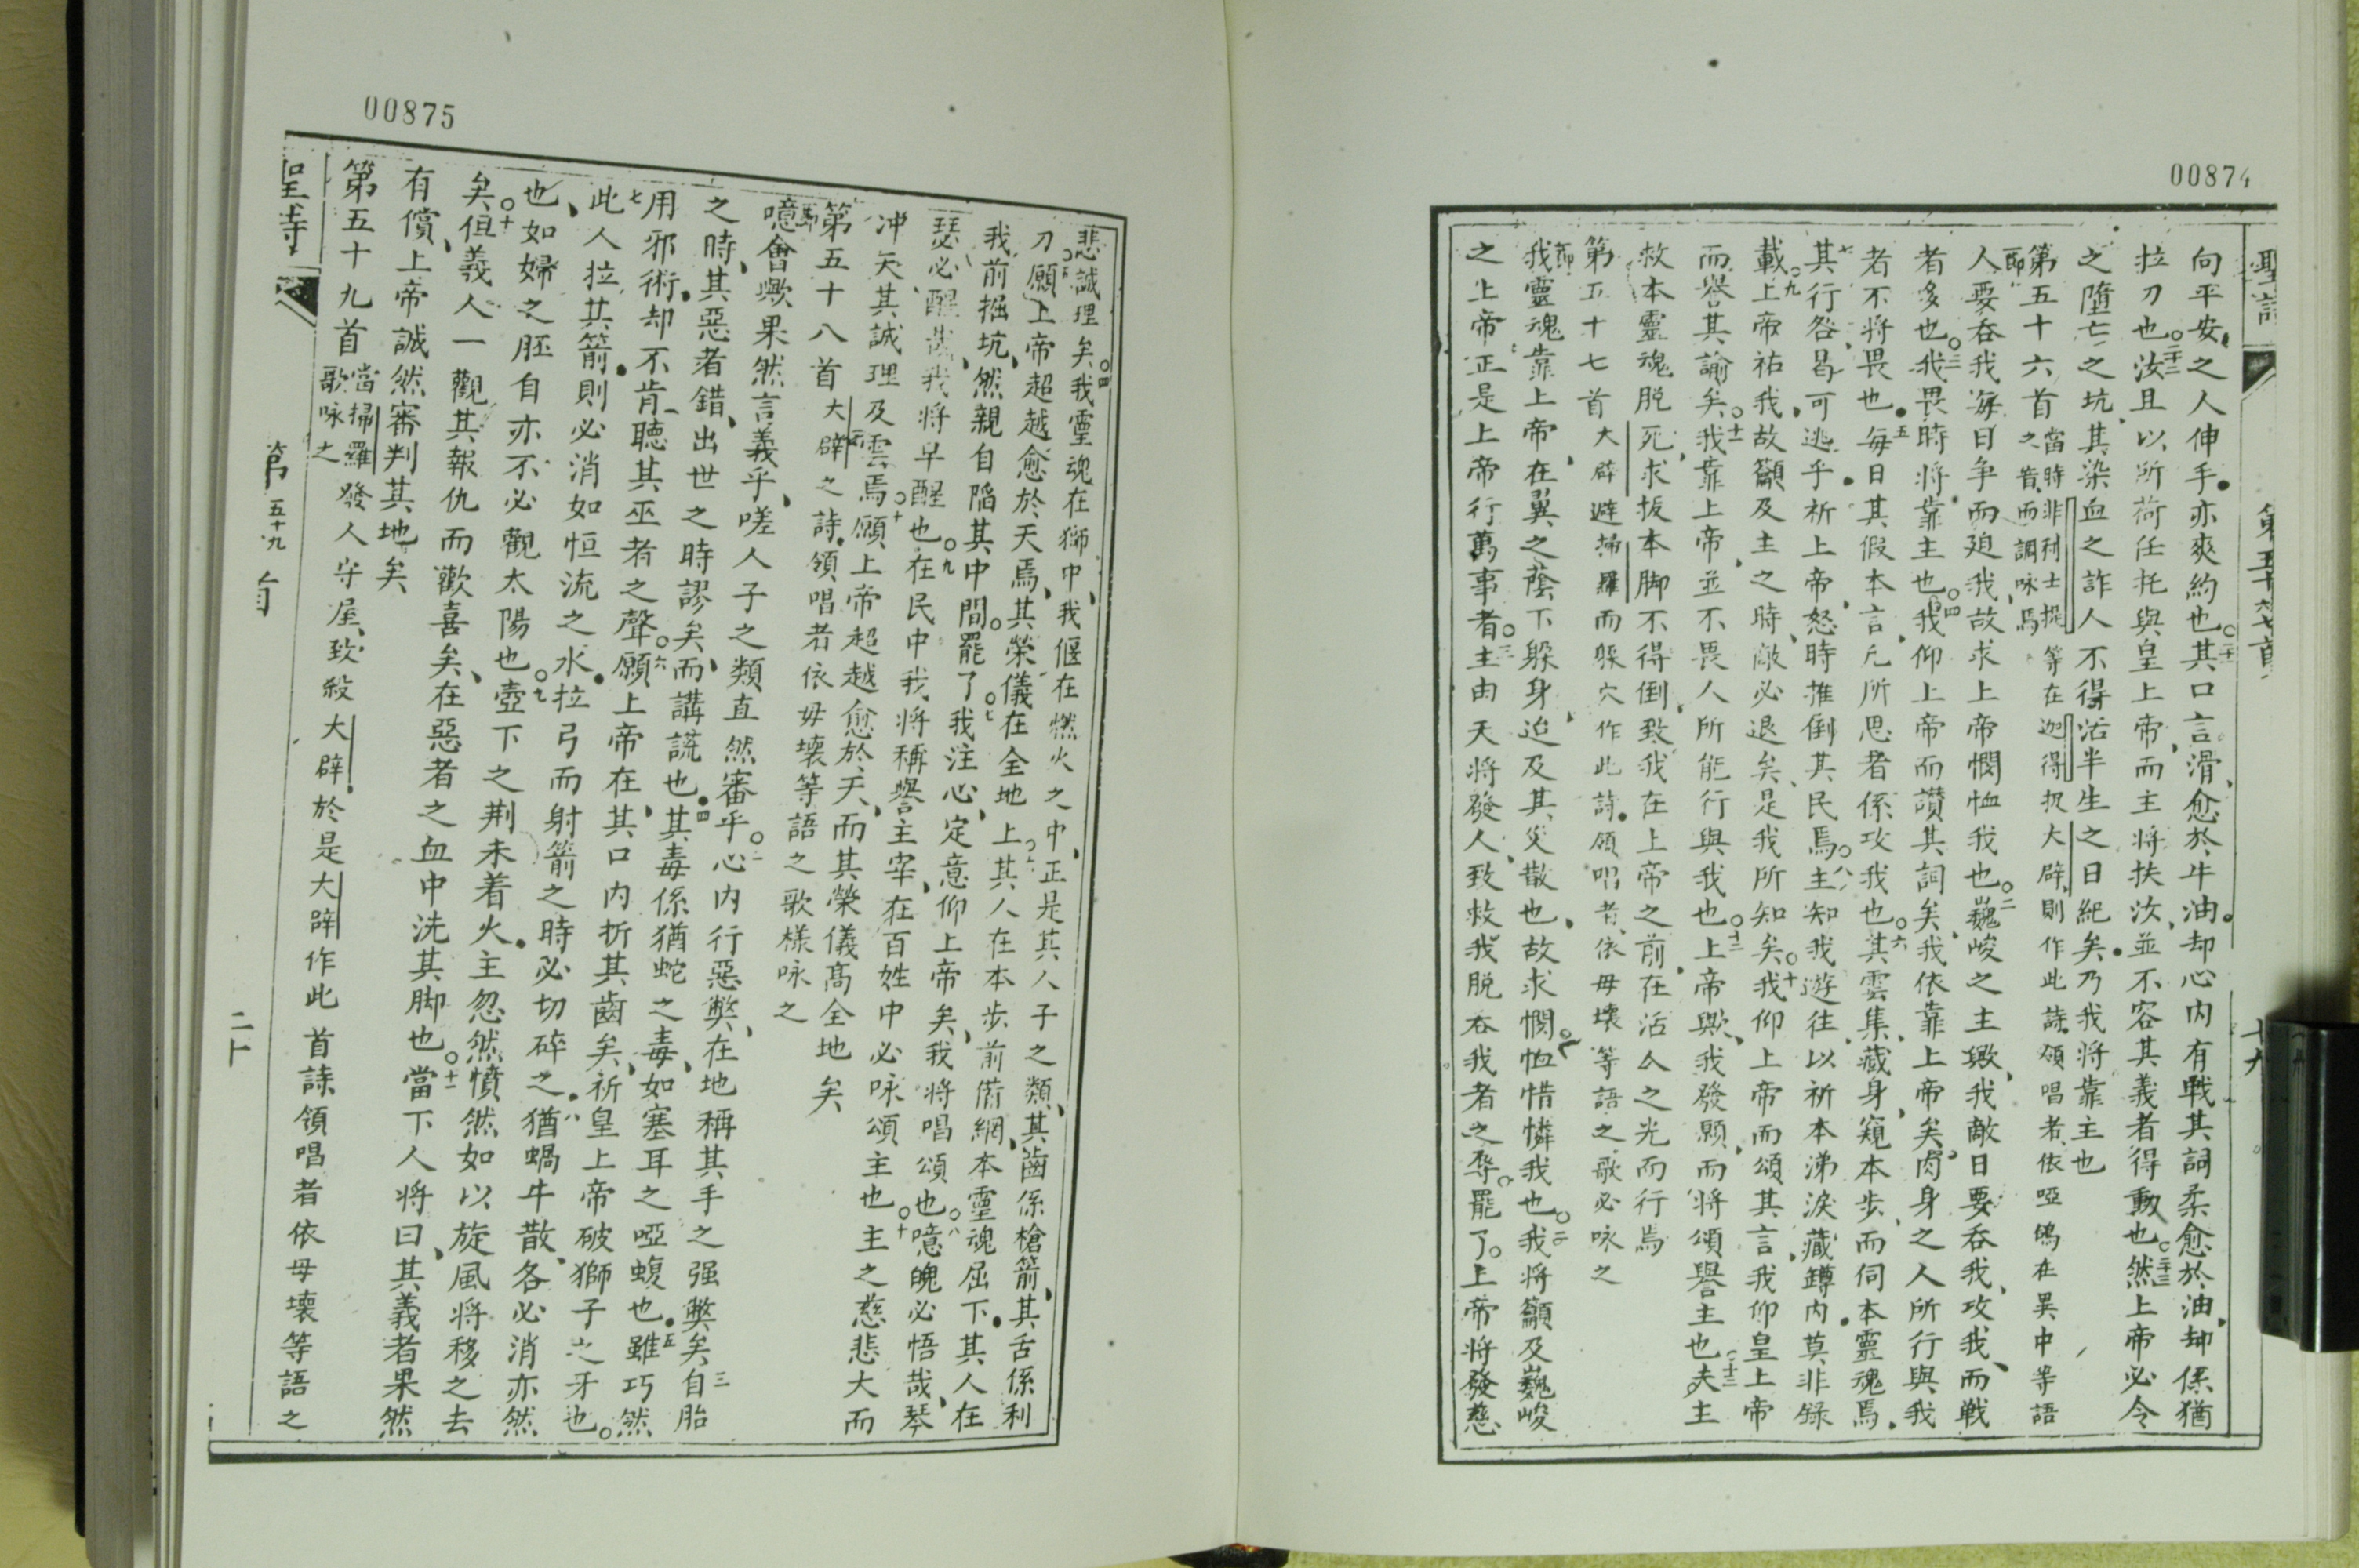 00874
聖詩
第五十六七首
十九
向平安之人伸手亦爽約也其口言滑愈於牛油却心内有戰其詞柔愈於油却係猶
拉刀也汝且以所荷任托與皇上帝而主將扶汝並不容其義者得動也然上帝必令
之墮亡之坑其染血之詐人不得活半生之日紀矣乃我將靠主也
第五十六首當時非利士提等在迦得扠大辟則作此詩頌唱者依啞鴿在異中等語
之音而調咏焉
人要吞我每日爭而廹我故求上帝憫恤我也巍峻之主歟我敵日要吞我攻我而戰
者多也我畏時將靠主也我仰上帝而讚其詞矣我依靠上帝矣肉身之人所行與我
者不將畏也每日其假本言凡所思者係攻我也其雲集藏身窺本步而伺本靈魂焉
其行咎曷可逃乎祈上帝怒時推倒其民焉主知我遊往以祈本涕淚藏罇内莫非錄
載上帝祐我故籲及主之時敵必退矣是我所知矣我仰上帝而頌其言我仰皇上帝
而譽其諭矣我靠上帝並不畏人所能行與我也上帝歟我發願而將頌譽主也夫主
救本靈魂脫死求拔本脚不得倒致我在上帝之前在活人之光而行焉
第五十七首大辟避掃羅而躲穴作此詩領唱者依毋壞等語之歌必咏之
我靈魂靠上帝在翼之蔭下躲身迨及其災散也故求憫恤惜憐我也我將籲及巍峻
之上帝正是上帝行萬事者主由天將發人致救我脫吞我者之辱罷了上帝將發慈
00875
悲誠理矣我靈魂在獅中我偃在燃火之中正是其人子之類其齒係槍箭其舌係利
刀願上帝超越愈於天焉其榮儀在全地上其人在本步前備網本靈魂屈下其人在
我前掘坑然親自陷其中間罷了我注心定意仰上帝矣我將唱頌也噫魄必悟哉琴
瑟必醒哉我將早醒也在民中我將稱譽主宰在百姓中必咏頌主也主之慈悲大而
冲天其誠理及雲焉願上帝超越愈於天而其榮儀高全地矣
第五十八首大辟之詩領唱者依毋壞等語之歌樣咏之
噫會歟果然言義乎嗟人子之類直然審乎心内行惡弊在地稱其手之强弊矣自胎
之時其惡者錯出世之時謬矣而講謊也其毒係猶蛇之毒如塞耳之啞蝮也雖巧然
用邪術却不肯聽其巫者之聲願上帝在其口内折其齒矣祈皇上帝破獅子之牙也
此人拉其箭則必消如恒流之水拉弓而射箭之時必切碎之猶蝸牛散各必消亦然
也如婦之胚自亦不必觀太陽也壺下之荆未着火主忽然憤然如以旋風將移之去
矣但義人一觀其報仇而歡喜矣在惡者之血中洗其脚也當下人將曰其義者果然
有償上帝誠然審判其地矣
第五十九首當掃羅發人守屋致殺大辟於是大辟作此首詩領唱者依毋壞等語之
歌咏之
聖詩
第五十九首
二十